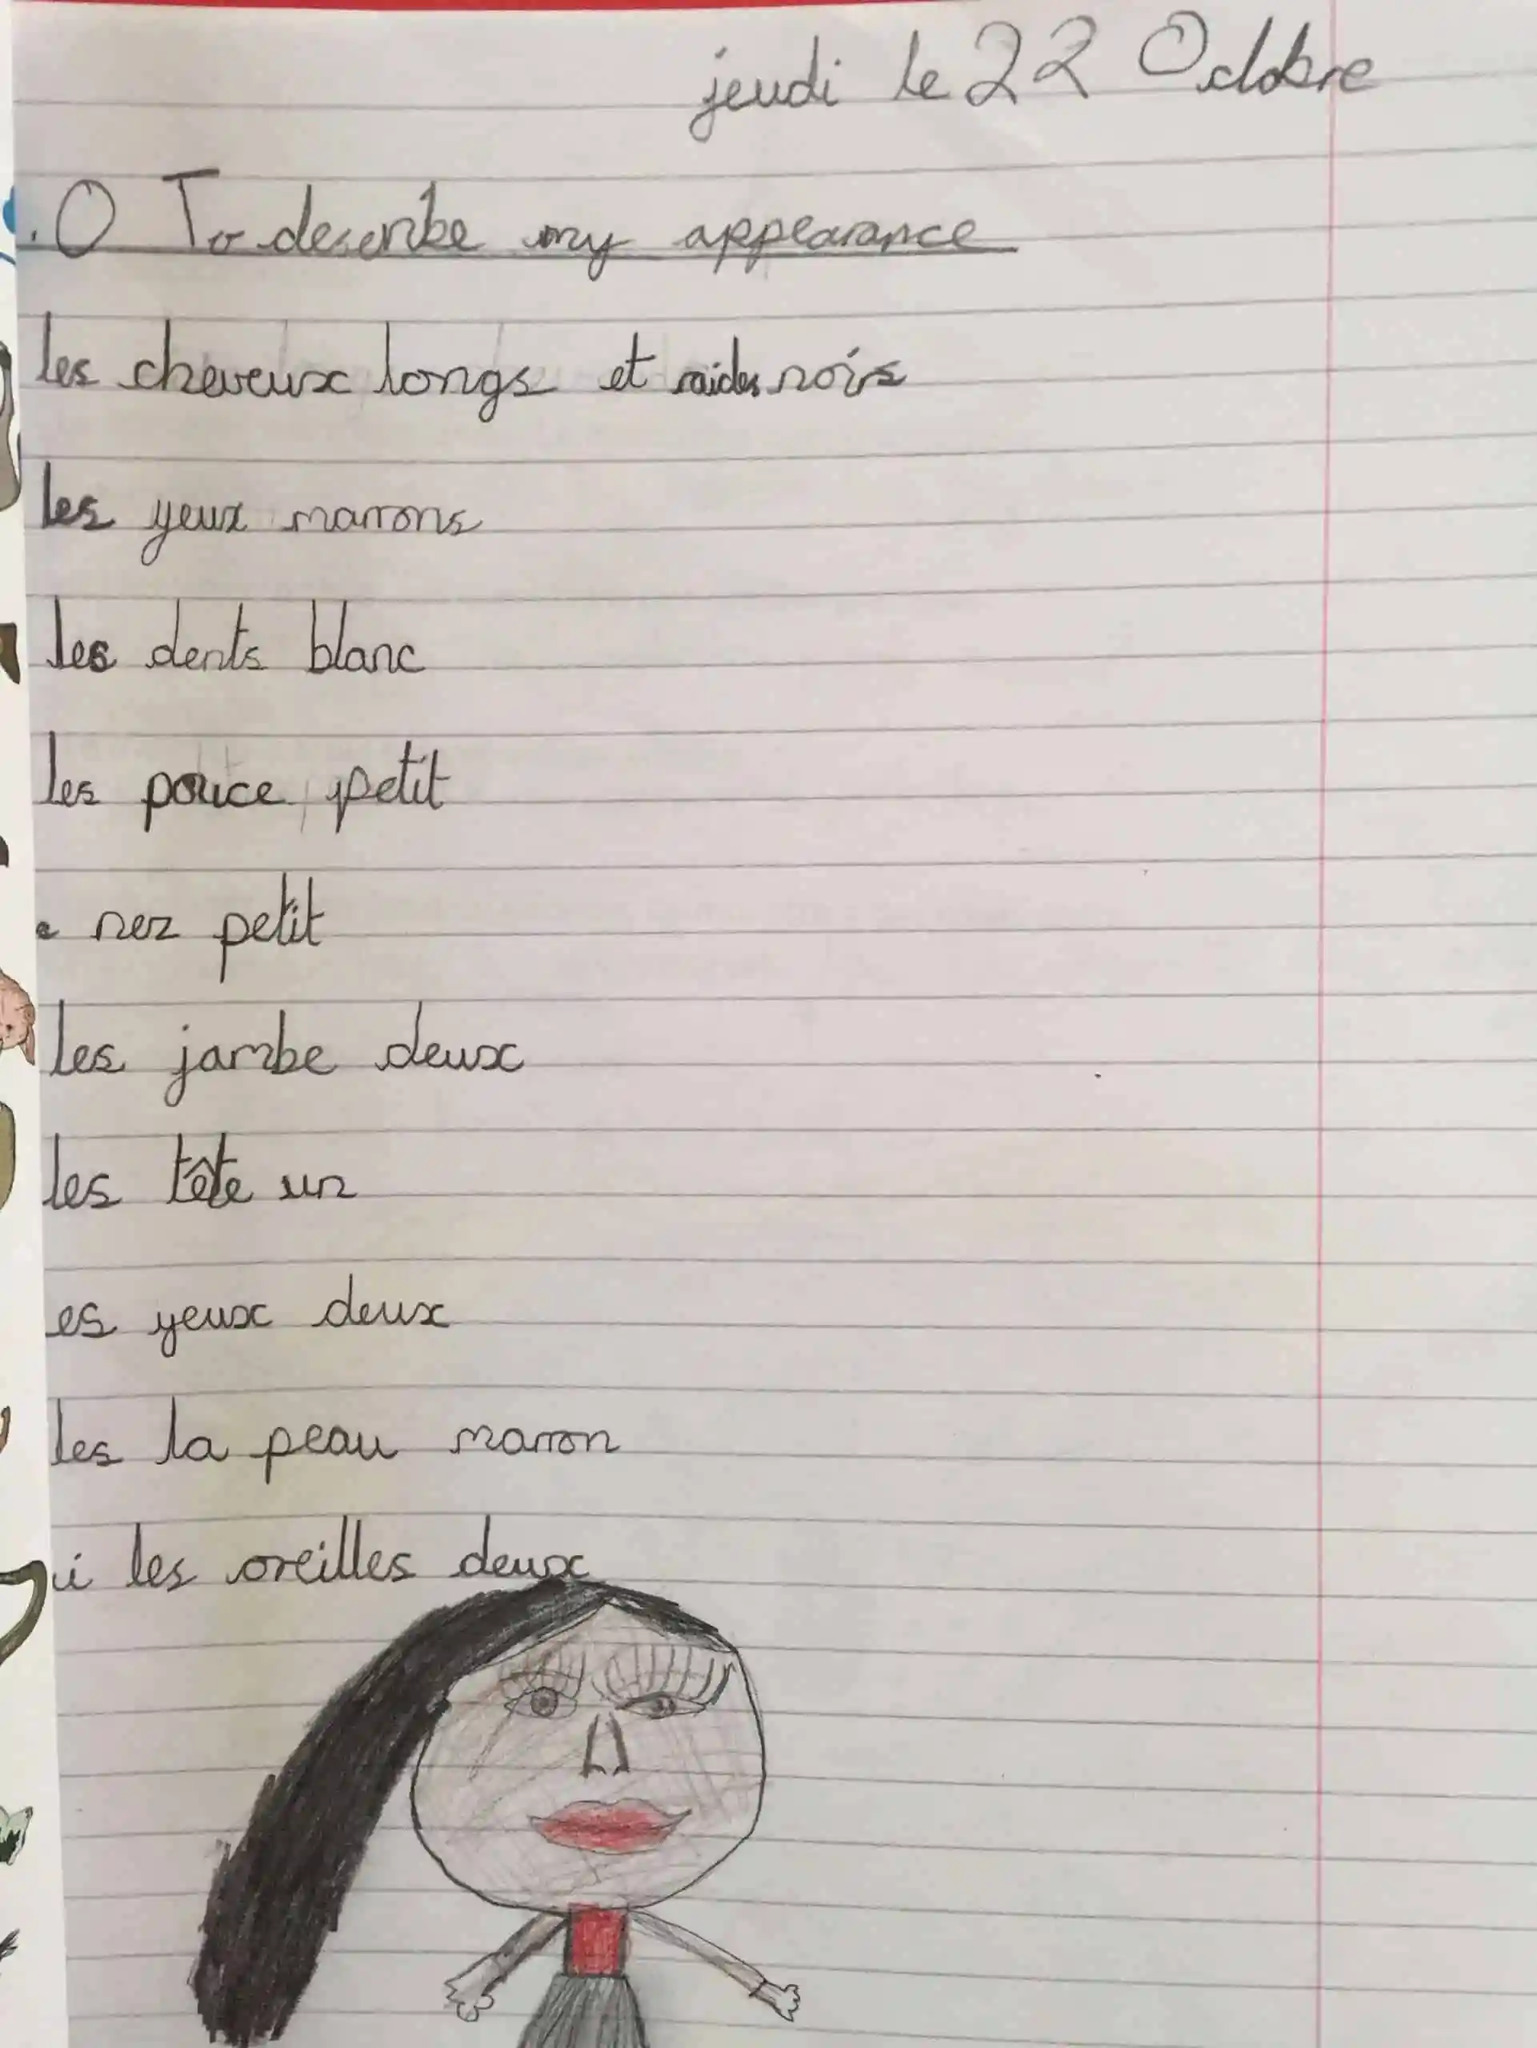 jeudi le 22 Octobre
.O To describe my appearance
les cheveux longs et raides noirs
les yeux marrons
les dents blanc
les pouce petit
e nez petit
les jambe deux
les tête un
es yeux deux
les la peau marron
i les oreilles deux